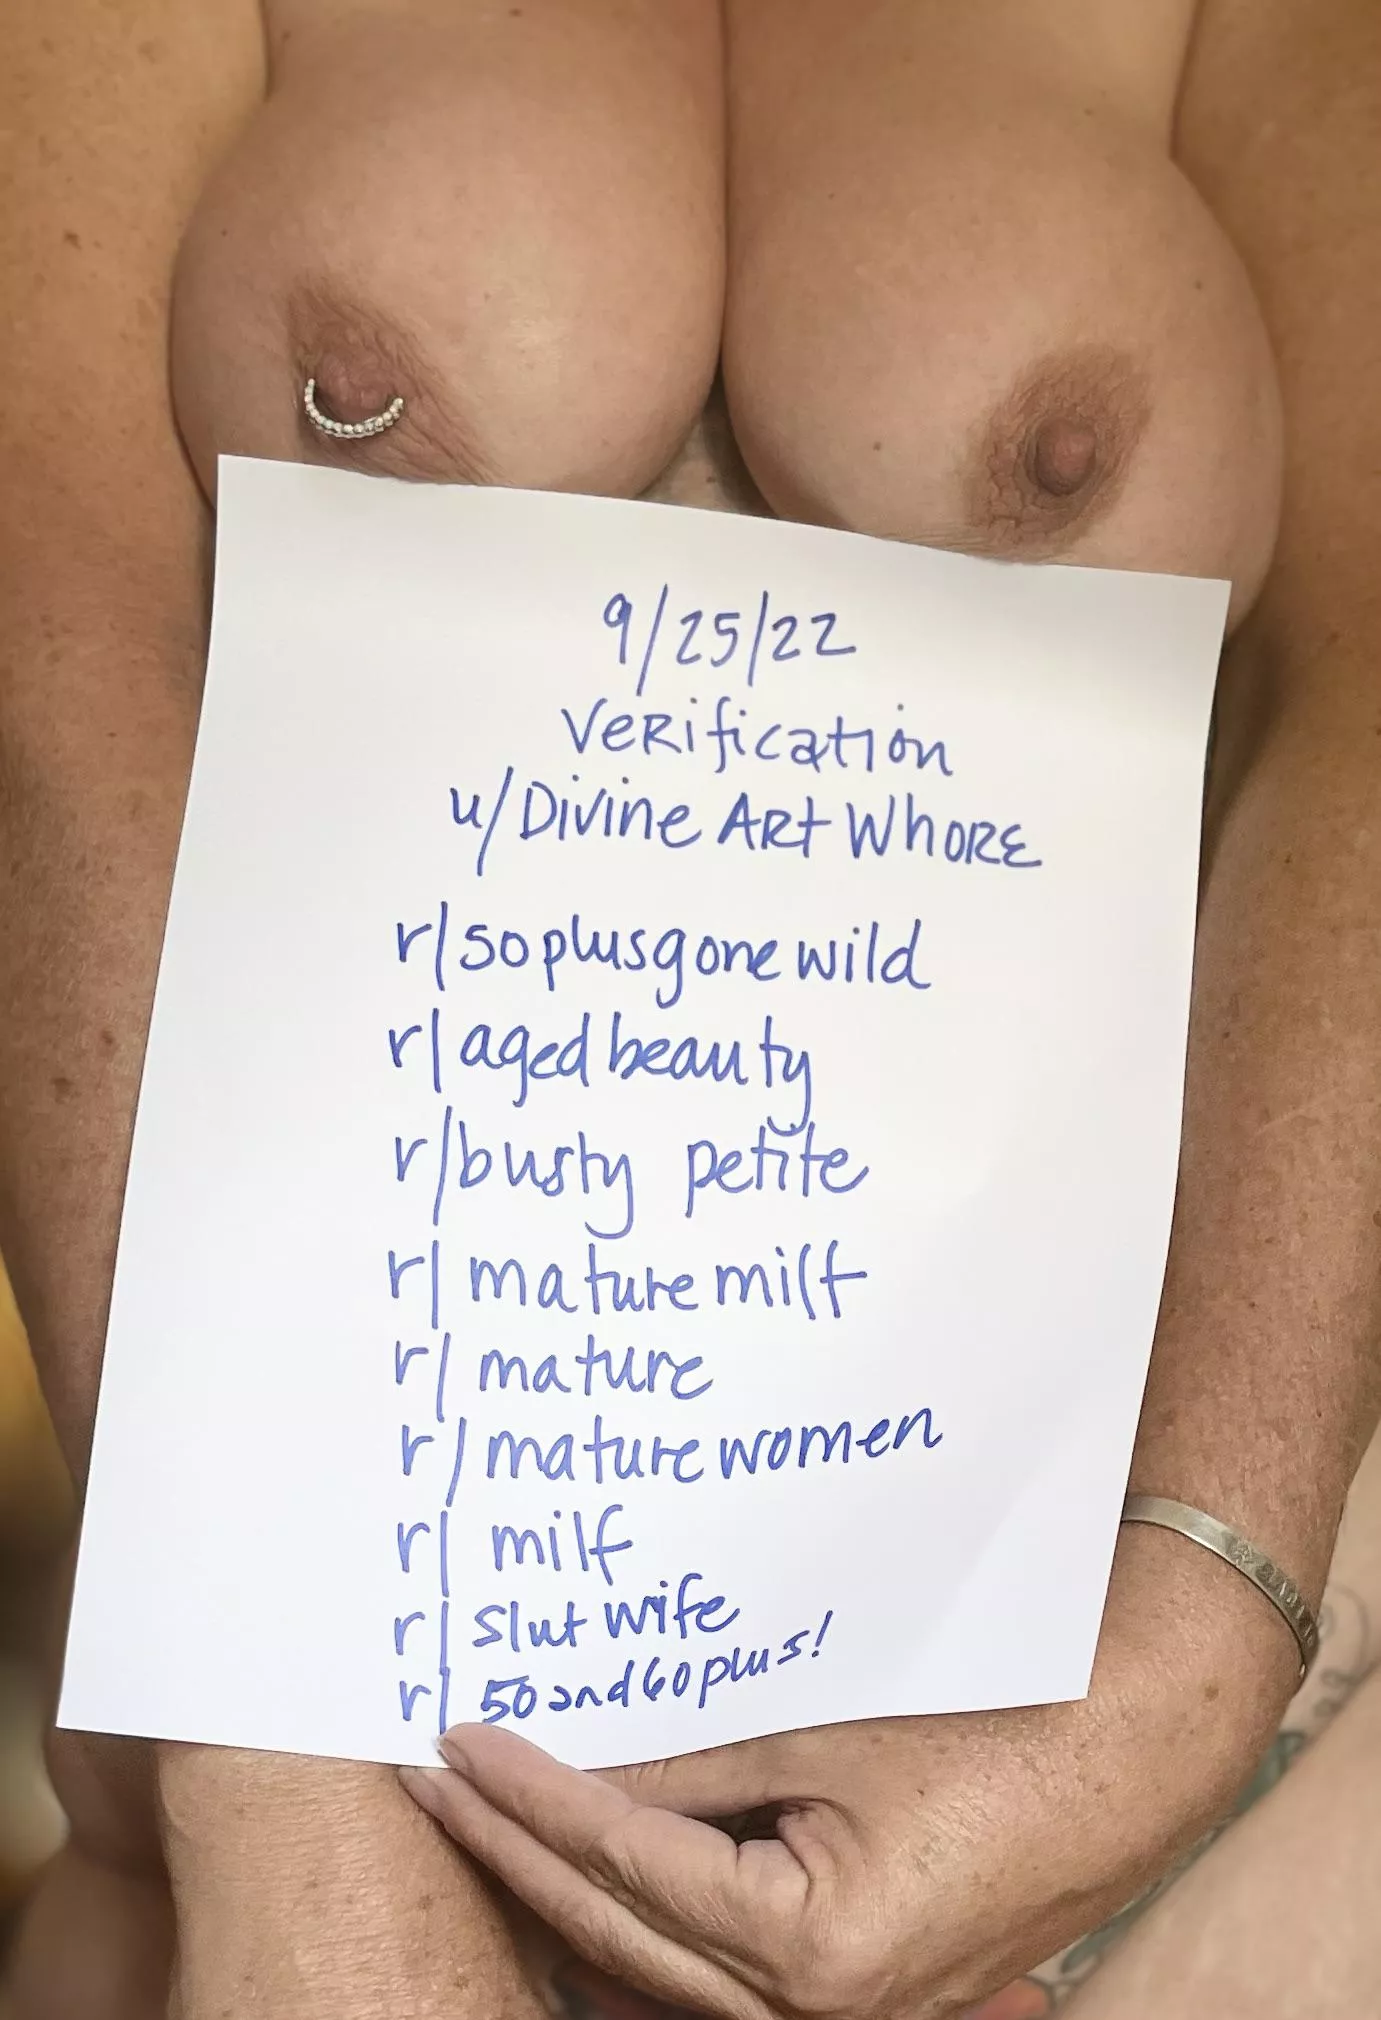 9/25/22
Verification
u/Divine Art Whore
r/50plusgonewild
r/agedbeauty
r/busty petite
r/maturemilf
r/mature
r/maturewomen
r/milf
r/slutwife
r/50and60plus!